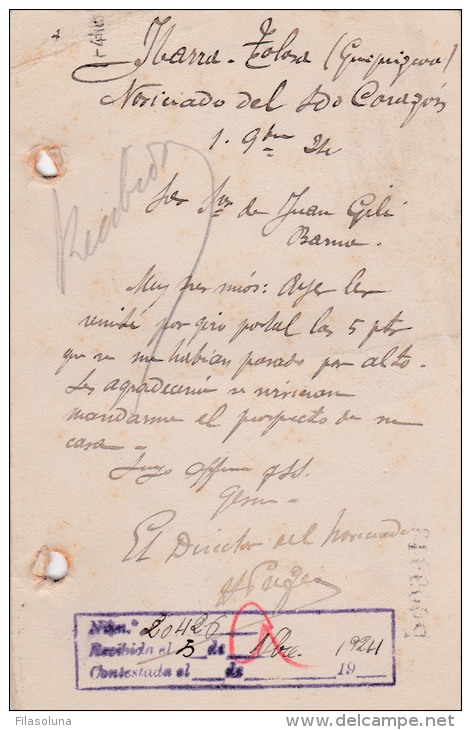 Ibarra - Tolosa (Guipúzcoa)
Noviciado del Sdo Corazón
1. 9bre 24
Sres de Juan Gili
Barna.
Recibido
Muy sres míos: Ayer les
remití por giro postal las 5 pts
que se me habían pasado por alto.
Les agradecería se sirvieran
mandarme el prospecto de su
casa -
Suyo affmo
El Director del Noviciado
Núm.º 20426
Recibida el 3 de Nbre 1924
Contestada el de 19
Filasoluna
www.delcampe.net